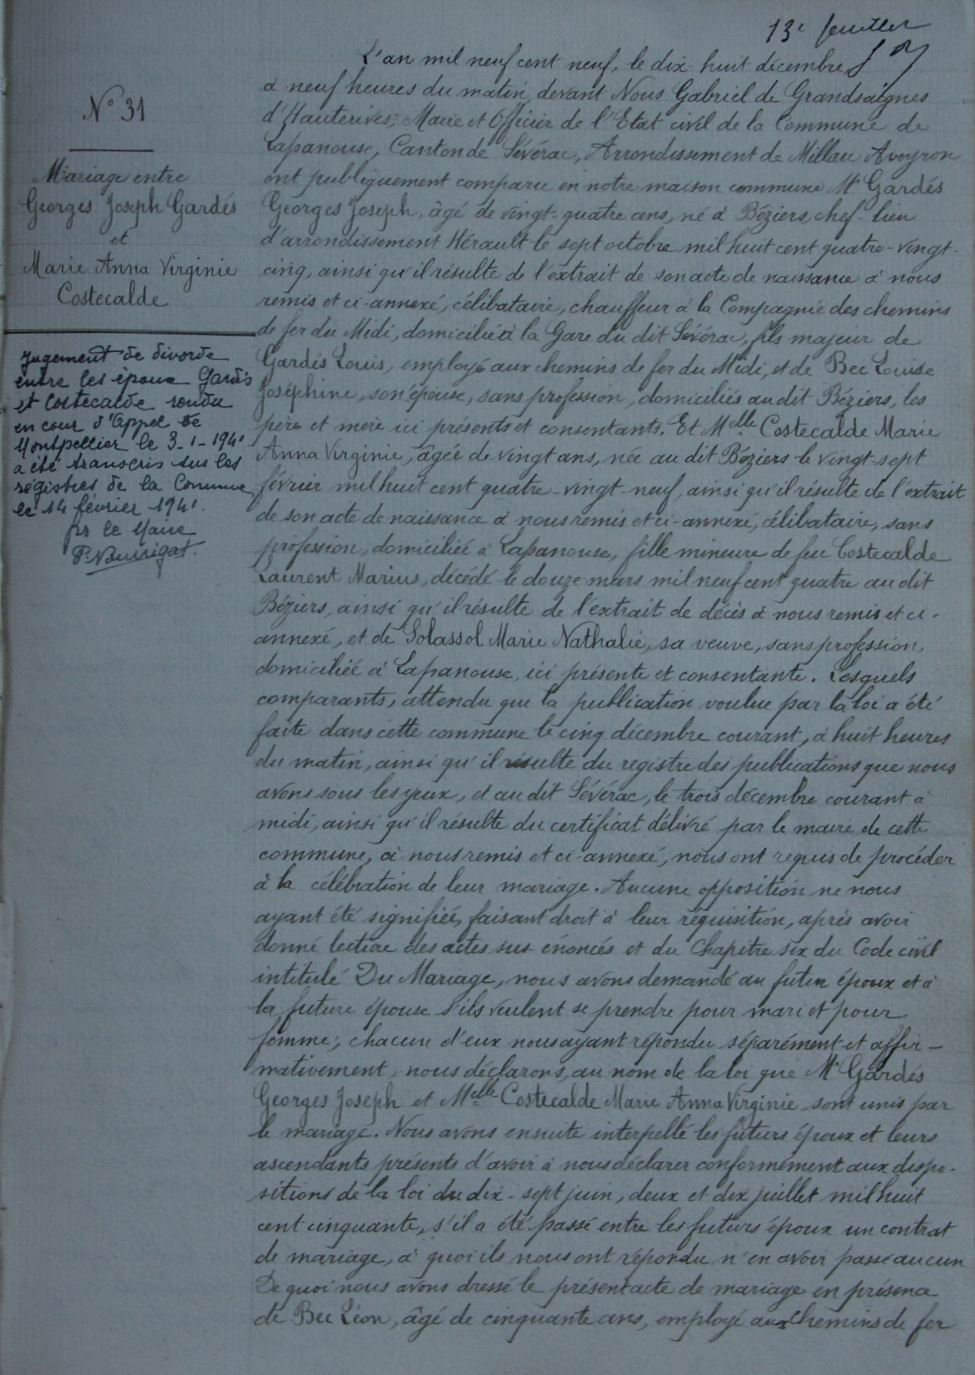 13e feuillet
N° 31
Mariage entre
Georges Joseph Gardés
et
Marie Anna Virginie
Costecalde
Jugement de divorce
entre les époux Gardés
et Costecalde rendu
en cour d'Appel de
Montpellier le 3-1-1941
a été transcris sur les
registres de la Commune
le 14 février 1941.
pr le Maire
L'an mil neuf cent neuf, le dix huit décembre
à neuf heures du matin, devant Nous Gabriel de Grandsaignes
d'Hauterives, Maire et Officier de l'Etat civil de la Commune de
Lapanouse, Canton de Sévérac, Arrondissement de Millau Aveyron
ont publiquement comparu en notre maison commune Mr Gardés
Georges Joseph, âgé de vingt-quatre ans, né à Béziers, chef-lieu
d'arrondissement Hérault le sept octobre mil huit cent quatre-vingt-
cinq, ainsi qu'il résulte de l'extrait de son acte de naissance à nous
remis et ci-annexé, célibataire, chauffeur à la Compagnie des chemins
de fer du Midi, domicilié à la Gare du dit Sévérac, fils majeur de
Gardés Louis, employé aux chemins de fer du Midi, et de Bec Louise
Joséphine, son épouse, sans profession, domiciliés au dit Béziers, les
père et mère ici présents et consentants. Et Melle Costecalde Marie
Anna Virginie, âgée de vingt ans, née au dit Béziers le vingt-sept
février mil huit cent quatre-vingt-neuf, ainsi qu'il résulte de l'extrait
de son acte de naissance à nous remis et ci-annexé, célibataire, sans
profession, domiciliée à Lapanouse, fille mineure de feu Costecalde
Laurent Marius, décédé le douze mars mil neuf cent quatre au dit
Béziers, ainsi qu'il résulte de l'extrait de décès à nous remis et ci-
annexé, et de Solassol Marie Nathalie, sa veuve, sans profession,
domiciliée à Lapanouse, ici présente et consentante. Lesquels
comparants, attendu que la publication voulue par la loi a été
faite dans cette commune le cinq décembre courant, à huit heures
du matin, ainsi qu'il résulte du registre des publications que nous
avons sous les yeux, et au dit Sévérac, le trois décembre courant à
midi, ainsi qu'il résulte du certificat délivré par le maire de cette
commune, à nous remis et ci-annexé, nous ont requis de procéder
à la célébration de leur mariage. Aucune opposition ne nous
ayant été signifiée, faisant droit à leur réquisition, après avoir
donné lecture des actes sus énoncés et du Chapitre six du Code civil
intitulé Du Mariage, nous avons demandé au futur époux et à
la future épouse s'ils veulent se prendre pour mari et pour
femme; chacun d'eux nous ayant répondu séparément et affir-
mativement, nous déclarons, au nom de la loi que Mr Gardés
Georges Joseph et Melle Costecalde Marie Anna Virginie sont unis par
le mariage. Nous avons ensuite interpellé les futurs époux et leurs
ascendants présents d'avoir à nous déclarer conformément aux dispo-
sitions de la loi du dix-sept juin, deux et dix juillet mil huit
cent cinquante, s'il a été passé entre les futurs époux un contrat
de mariage, à quoi ils nous ont répondu n'en avoir passé aucun
De quoi nous avons dressé le présent acte de mariage en présence
de Bec Léon, âgé de cinquante ans, employé aux chemins de fer